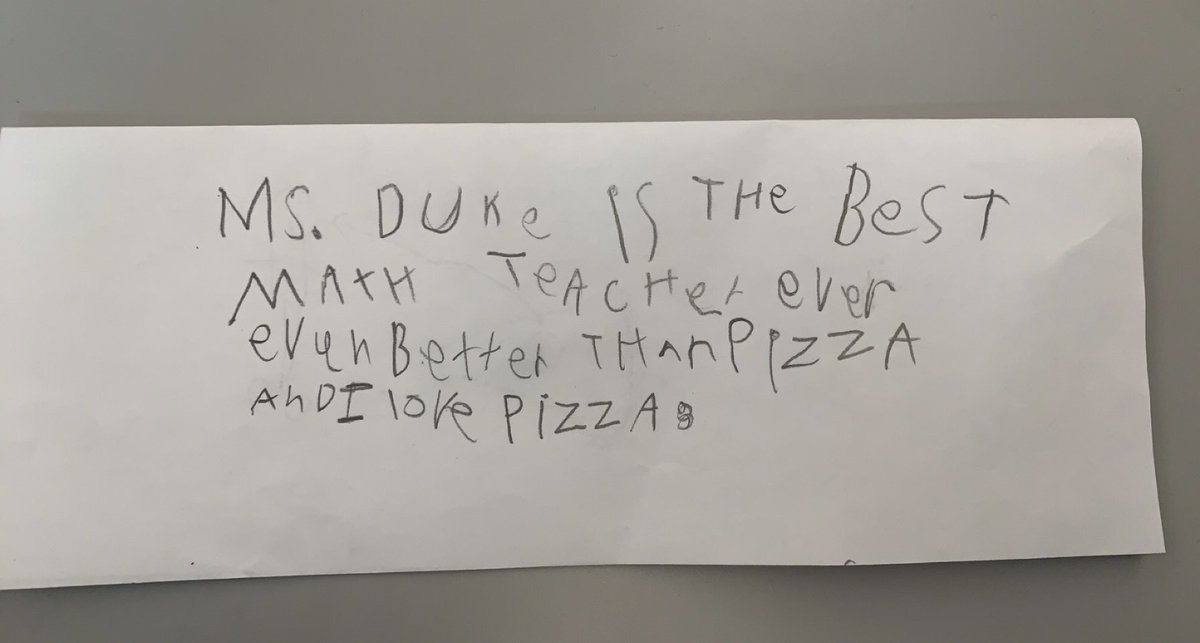 MS. DUKe IS THe BeST
MATH TeACHer ever
evenBetter THAnPIZZA
AnDI love PIZZA.